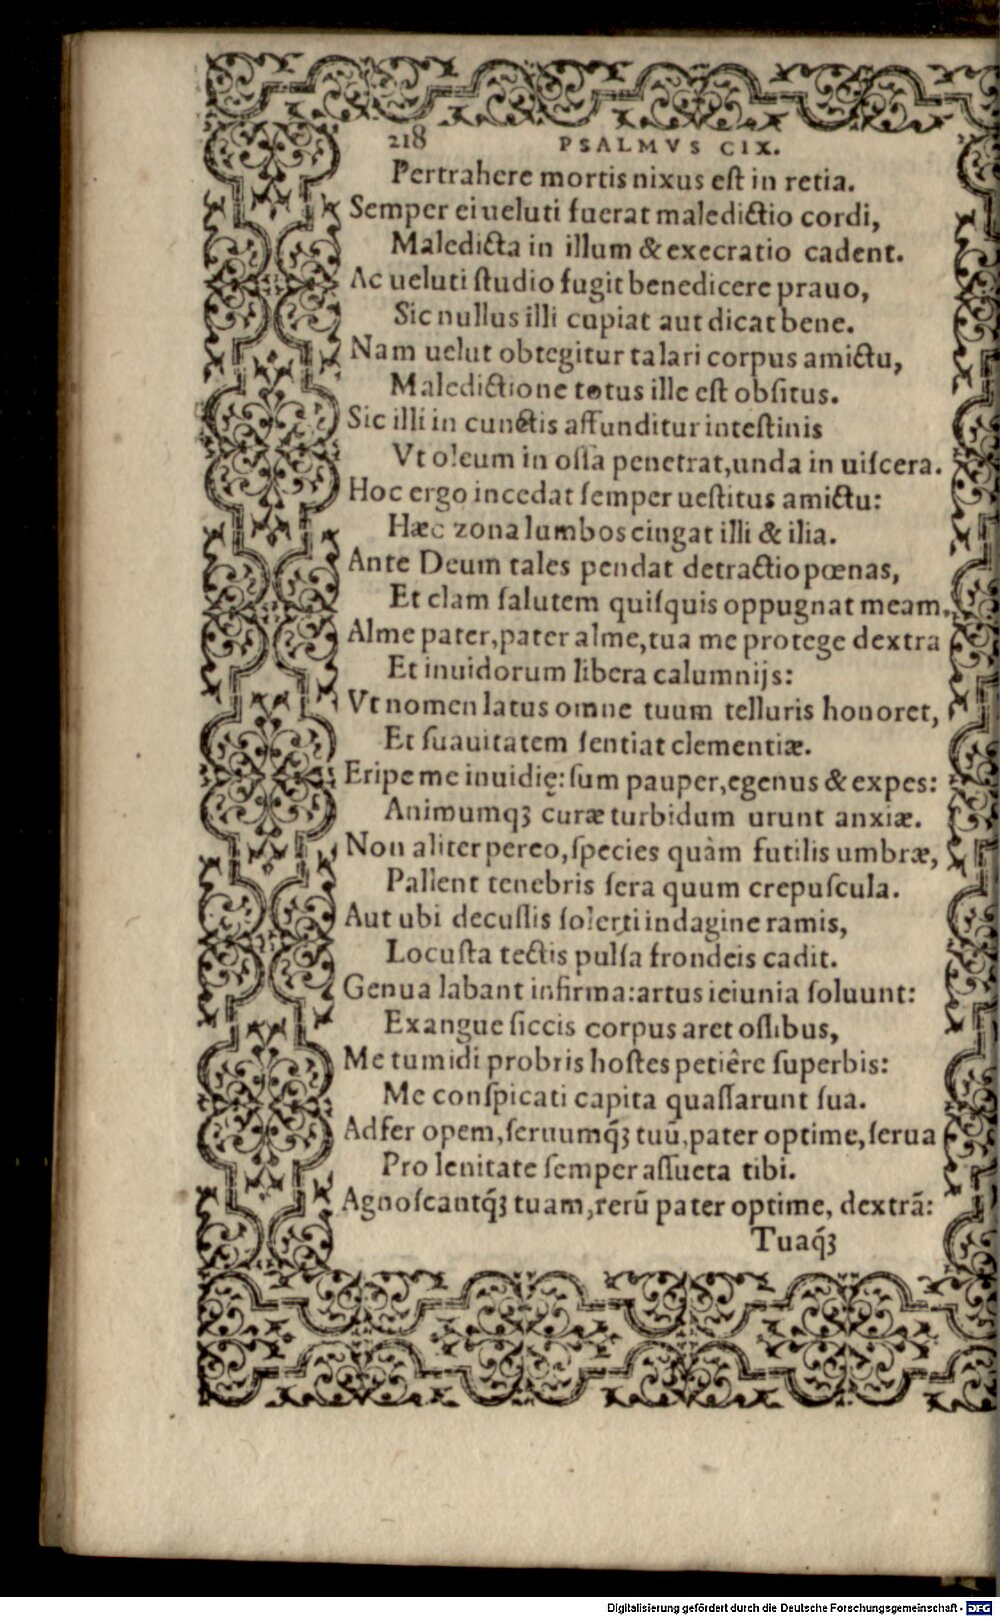 218 PSALMVS CIX.
Pertrahere mortis nixus est in retia.
Semper ei ueluti fuerat maledictio cordi,
Maledicta in illum & execratio cadent.
Ac ueluti studio fugit benedicere prauo,
Sic nullus illi cupiat aut dicat bene.
Nam uelut obtegitur talari corpus amictu,
Maledictione totus ille est obsitus.
Sic illi in cunctis affunditur intestinis
Vt oleum in ossa penetrat, unda in uiscera.
Hoc ergo incedat semper uestitus amictu:
Hæc zona lumbos cingat illi & ilia.
Ante Deum tales pendat detractio pœnas,
Et clam salutem quisquis oppugnat meam.
Alme pater, pater alme, tua me protege dextra
Et inuidorum libera calumnijs:
Vt nomen latus omne tuum telluris honoret,
Et suauitatem sentiat clementiæ.
Eripe me inuidię: sum pauper, egenus & expes:
Animumqꝫ curæ turbidum urunt anxiæ.
Non aliter pereo, species quàm futilis umbræ,
Pallent tenebris sera quum crepuscula.
Aut ubi decussis solerti indagine ramis,
Locusta tectis pulsa frondeis cadit.
Genua labant infirma: artus ieiunia soluunt:
Exangue siccis corpus aret ossibus,
Me tumidi probris hostes petiêre superbis:
Me conspicati capita quassarunt sua.
Adfer opem, seruumq́ꝫ tuũ, pater optime, serua
Pro lenitate semper assueta tibi.
Agnoscantq́ꝫ tuam, rerũ pater optime, dextrã:
Tuaq́ꝫ
Digitalisierung gefördert durch die Deutsche Forschungsgemeinschaft - DFG